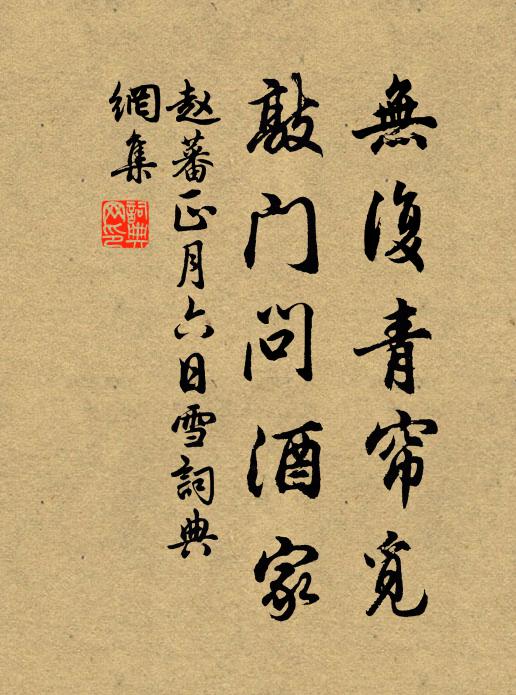 無復青帘覓
敲门问酒家
赵蕃正月六日雪詞典
網集
詞典网印